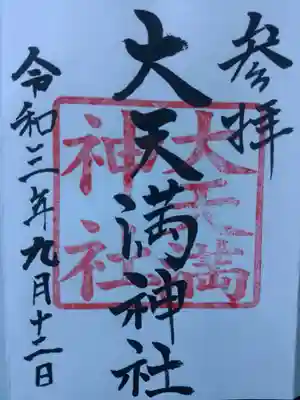 参拝
大天満神社
大天満
神社
令和三年九月十二日